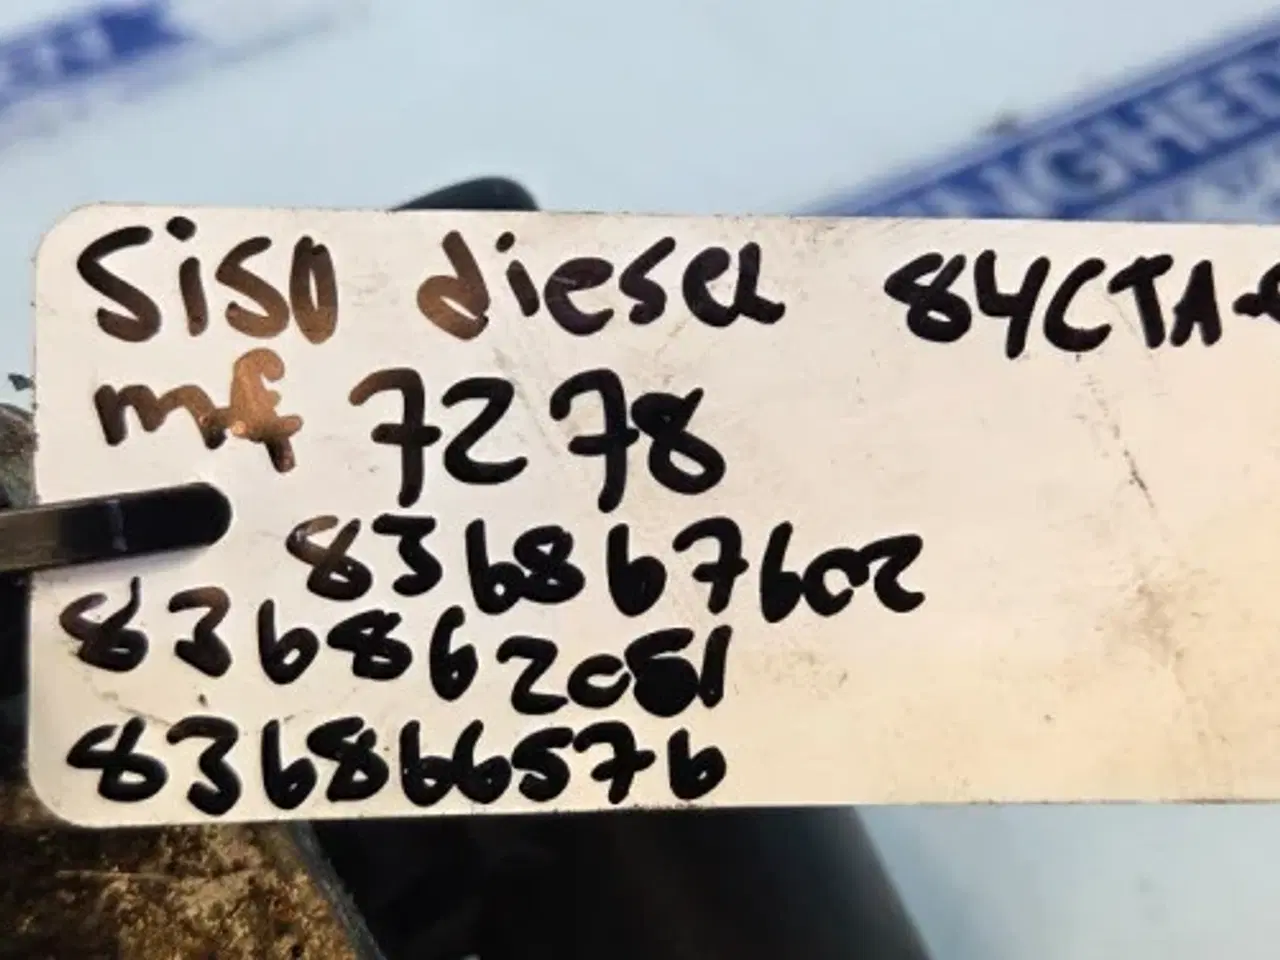 Siso diesel 84CTA-
mf 7278
836867602
836862051
836866576